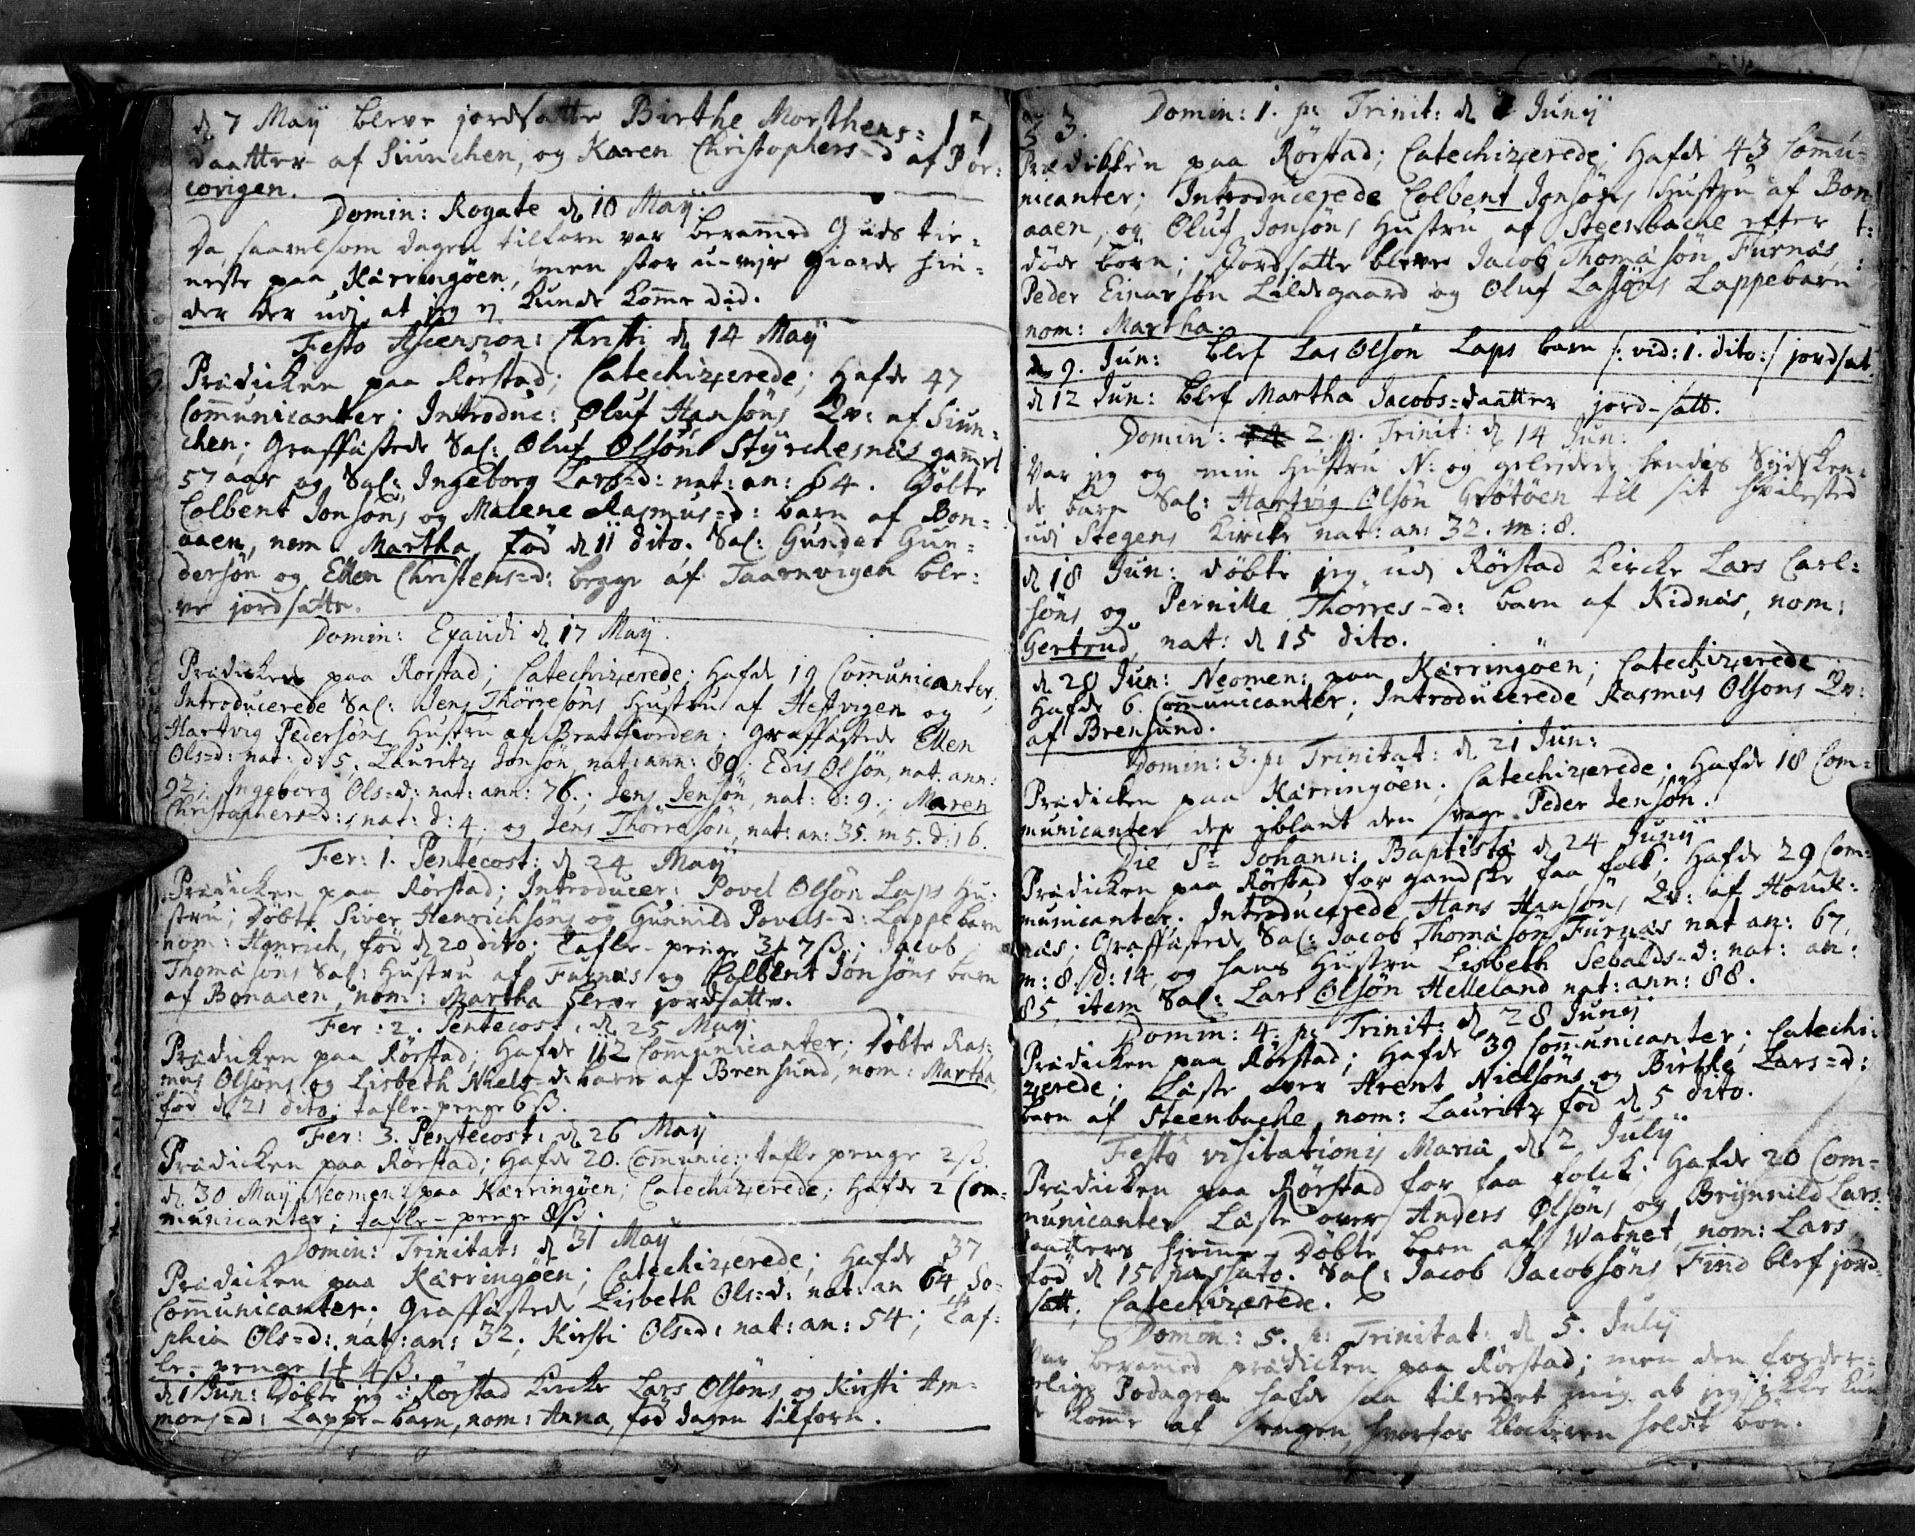 d. 7 May bleve jordsatte Birthe Morthens=
daatter af Siunchen, og Karen Christophers-d af Por:
corigen.
Domin: Rogate d. 10 May.
Da saavelsom dagen tilforn var berammed Guds tie=
neste paa Kærringøen, men stor u-vejr giorde hin=
der der udj, at jeg ej kunde komme did.
Festo Ascension: Christi d. 14 May
Prædicken paa Rørstad; Catechizerede; Hafde 47
Communicanter; Introduc: Oluf Hansøns Qv: af Siun=
chen; Graffæstede Sal: Oluf Olsøn Styrchesnæs gammel
57 aar og Sal: Ingeborg Lars=d: nat: an: 64. Døbte
Colbent Jonsøns og Malene Rasmus=d: barn af Bon=
aaen, nom. Martha, fød d. 11 dito. Sal: Gunder Gun=
dersøn og Ellen Christens=d: begge af Taarnvigen ble=
ve jordsatte.
Domin: Exaudi d. 17 May.
Prædicken paa Rørstad; Catechizerede; Hafde 19 Communicanter;
Introducerede Sal: Jens Thørresøns Hustru af Heftvigen og
Hartvig Pedersøns Hustru af Bratfiorden; Graffæstede Ellen
Ols=d: nat: d: 5. Lauritz Jonsøn, nat: ann: 89. Edis Olsøn, nat: ann:
92; Ingeborg Ols=d: nat: ann: 76.; Jens Jensøn, nat: d: 9.; Maren
Christophers=d:, nat: d: 4, og Jens Thørresøn, nat: an: 35. m 5. d: 16.
Fer: 1. Pentecost: d. 24 May
Prædicken paa Rørstad; Introducer: Povel Olsøn Laps Hu=
stru; Døbte Siver Henrichsøns og Gunnild Povels-d: Lappe barn
nom: Henrich, fød d. 20 dito; Tafle-penge 3 ƒ 7 ß.; Jacob
Thomæsøns Sal: Hustru af Furnæs og Colbent Jonsøns barn
af Bonaaen, nom: Martha bleve jordsatte.
Fer: 2. Pentecost: d. 25 May.
Prædicken paa Rørstad; Hafde 112 Communicanter; Døbte Ras=
mus Olsøns og Lisbeth Niels=d: barn af Brensund, nom: Martha,
fød d. 21 dito; tafle-penge 6 ß.
Fer: 3. Pentecost: d. 26 May
Prædicken paa Rørstad; Hafde 20. Communic:; tafle penge 2 ß.
d. 30 May Neomen: paa Kærringøen; Catechizerede; Hafde 2 Com=
municanter; tafle-penge 8 ß.
Domin: Trinitat: d. 31 May
Prædicken paa Kærringøen; Catechizerede; Hafde 37
Communicanter; Graffæstede Lisbeth Ols=d: nat: an 64 So=
phia Ols=d: nat: an: 32; Kirsti Ols=d: nat: an: 54; Taf=
le-penge 1 ƒ 4 ß.
d. 1 Jun: Døbte jeg i Rørstad Kircke Lars Olsøns og Kirsti Am=
mons=d: Lappe-barn, nom: Anna, fød dagen tilforn.
Domin: 1. p: Trinit: d. 7 Junij
Prædicken paa Rørstad; Catechizerede; Hafde 43 Commu=
nicanter; Introducerede Colbent Jonsøns Hustru af Bon
aaen, og Oluf Jonsøns Hustru af Steenbache efter
døde børn; Jordsatte bleve Jacob Thomæsøn Furnæs,
Peder Einarsøn Lildegaard og Oluf Lasøns Lappebarn
nom: Martha.
d. 9. Jun: blef Las Olsøn Laps barn /: vid: 1. dito:/ jordsat.
d. 12 Jun: blef Martha Jacobs=daatter jord-satt.
Domin: 2. p. Trinit: d. 14 Jun:
Var jeg og min Hustru N: og geleydede hendis Sydsken=
de barn Sal: Hartvig Olsøn Grøtøen til sit hvilested
udi Stegens Kircke nat: an: 32. m: 8.
d. 18 Jun: døbte jeg udj Rørstad Kircke Lars Carl=
søns og Pernille Thorres-d: barn af Kidnæs, nom:
Gertrud, nat: d. 15 dito.
d. 20 Jun: Neomen: paa Kærringøen; Catechizerede
Hafde 6. Communicanter; Introducerede Rasmus Olsøns Qv:
af Brensund.
Domin: 3. p: Trinitat: d. 21 Jun:
Prædicken paa Kærringøen; Catechizerede; Hafde 18 Com=
municanter, der iblant den svage Peder Jensøn.
Die St. Johann: Baptistæ d. 24 Junij
Prædicken paa Rørstad for gandske faa folk; Hafde 29 Com=
municanter; Introducerede Hans Hansøns Qv: af Houk=
næs; Graffæstede Sal: Jacob Thomæsøn Furnæs nat an: 67,
m: 8. d: 14, og hans Hustru Lisbeth Sebalds-d: nat: an:
85, item Sal: Lars Olsøn Helleland nat: ann: 88.
Domin: 4. p: Trinit: d. 28 Junij
Prædicken paa Rørstad; Hafde 39 Communicanter; Catechi=
zerede; Læste over Arent Nielsøns og Birthe Lars=d:
barn af Steenbache, nom: Lauritz fød d. 5 dito.
Festo visitationis Mariæ d. 2 Julij
Prædicken paa Rørstad for faa folck; Hafde 20 Com=
municanter. Læste over Anders Olsøns og Brynnild Lars
daatters hjemme-Døbte barn af Watnet, nom: Lars,
fød d. 15 passato. Sal: Jacob Jacobsøns Find blef jord=
satt. Catechizerede.
Domin: 5. p: Trinitat: d. 5. Julij
Var berammed prædicken paa Rørstad; men den forder=
velige Podagra hafde saa tilredet mig at jeg icke kun
de komme af sengen, hvorfor Klockeren holdt bøn.